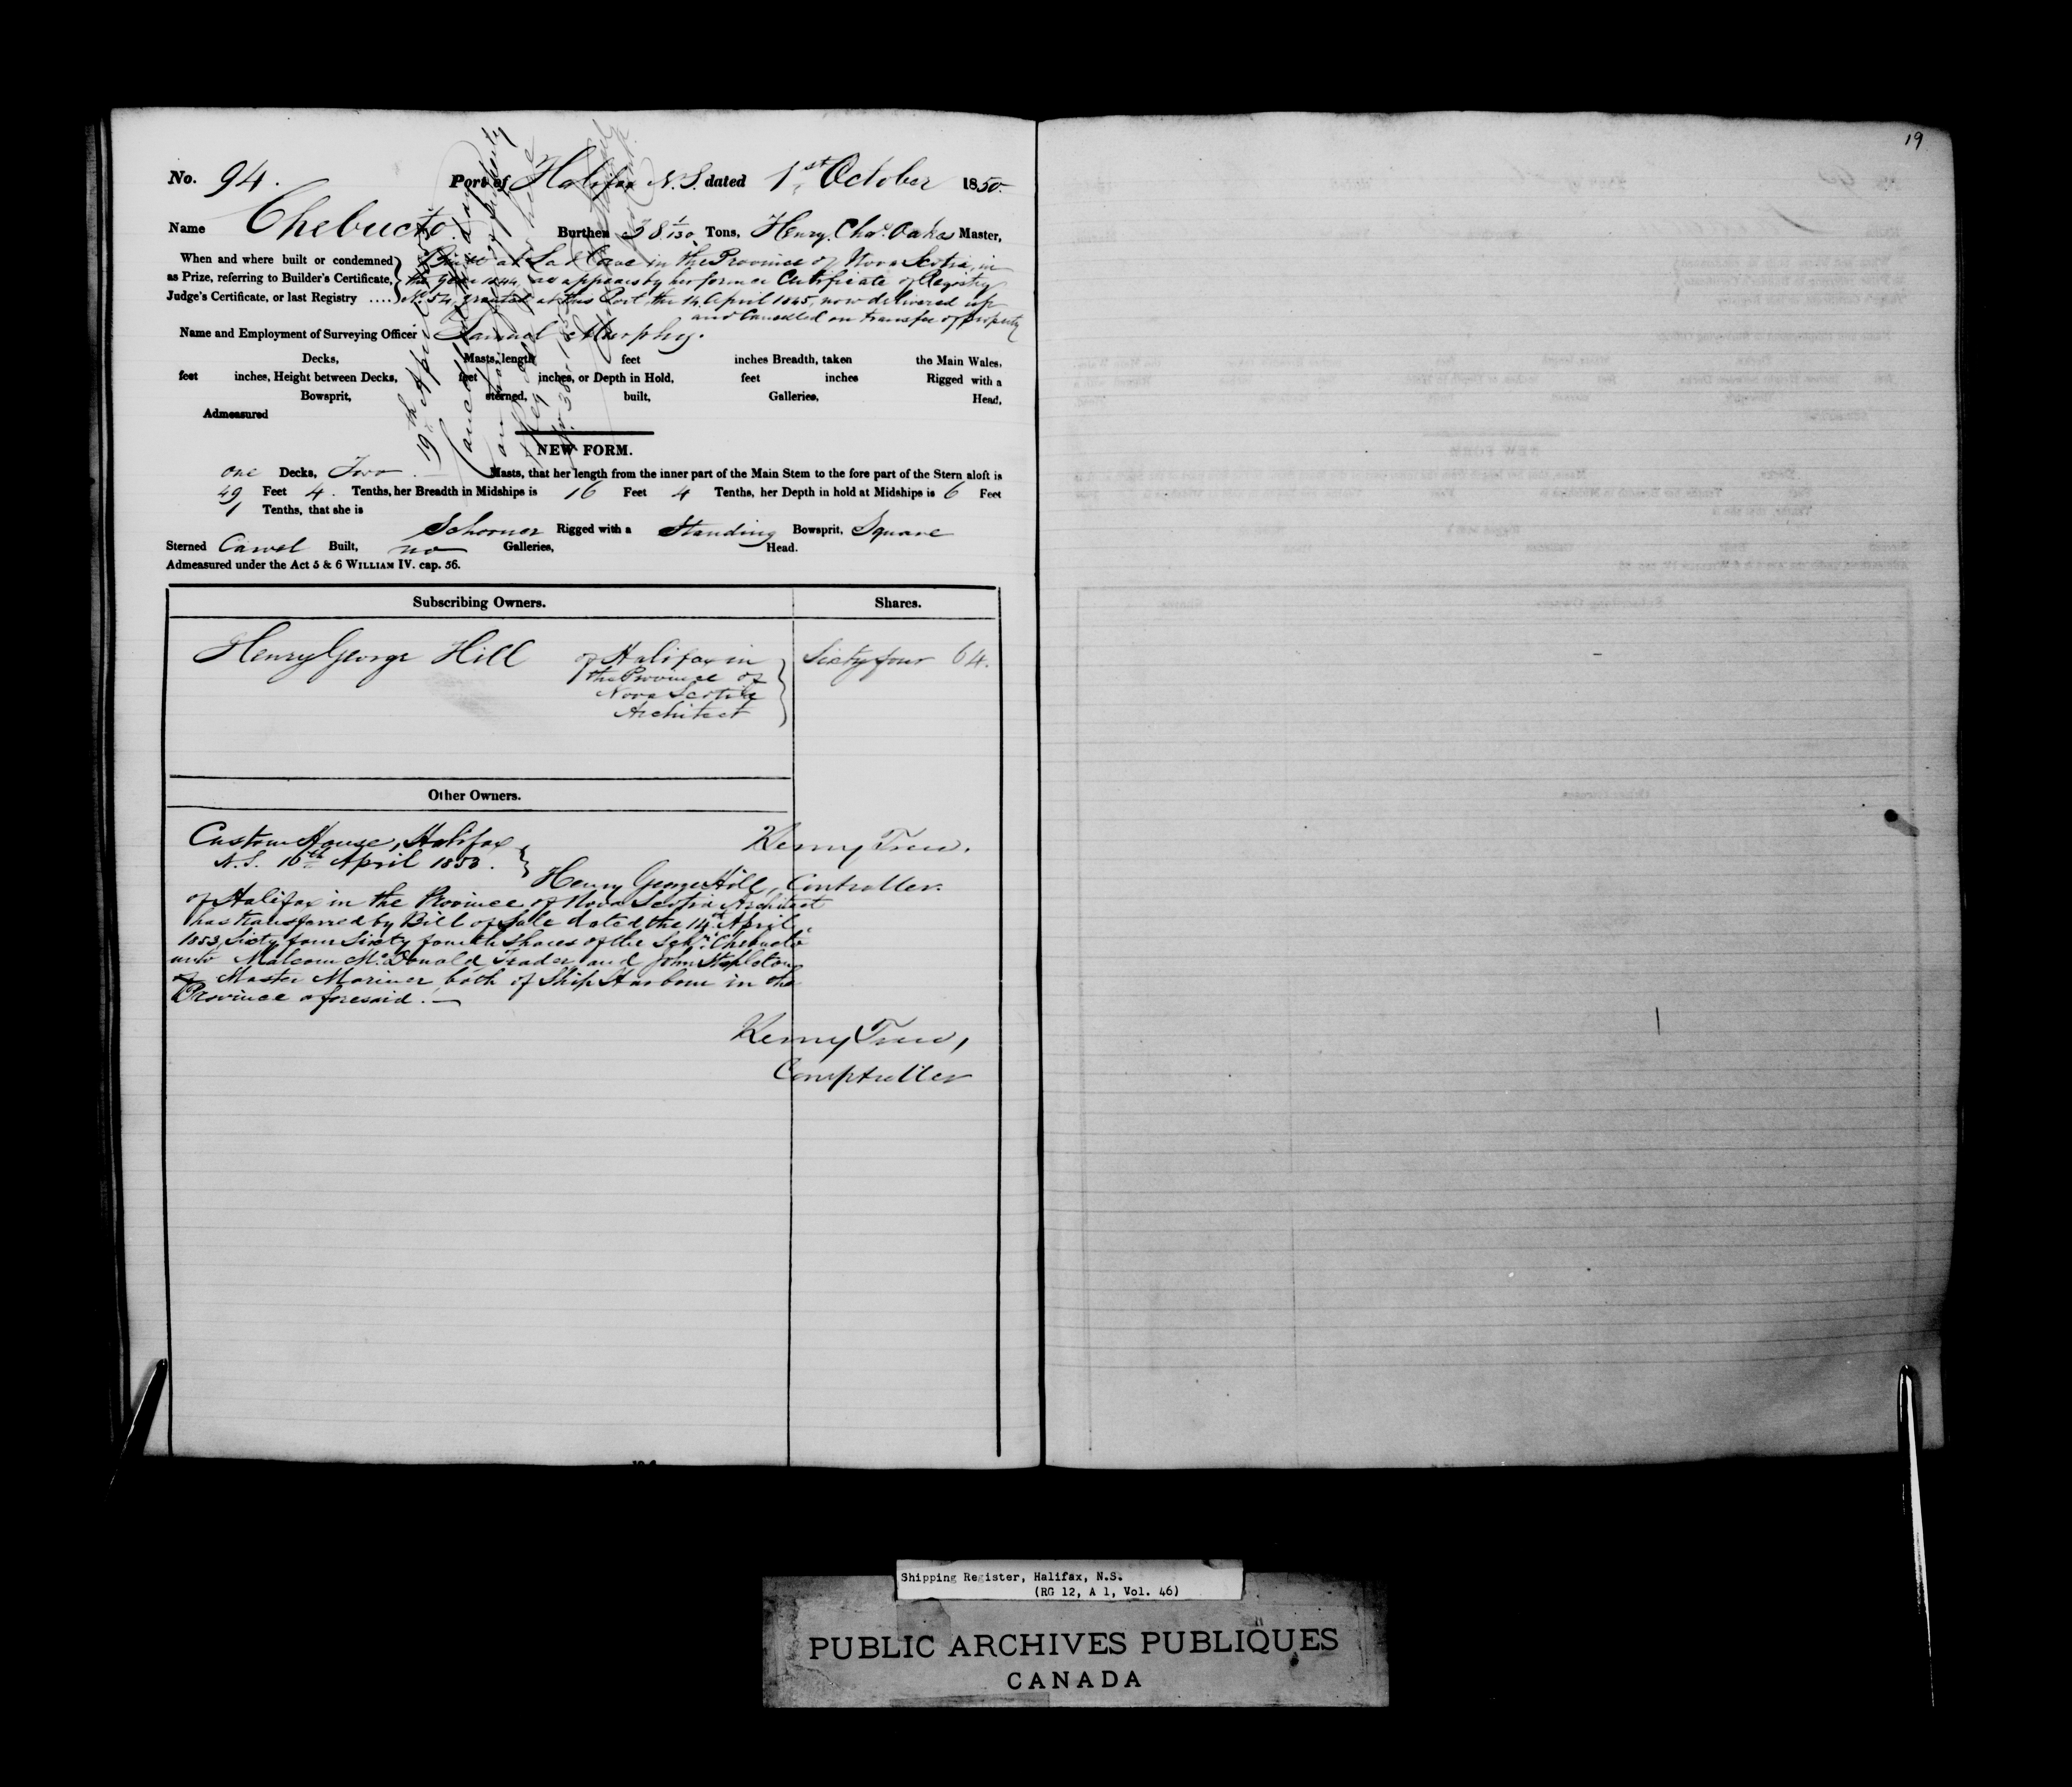 19
No. 94. Port of Halifax N.S. dated 1st October 1850.
Name Chebucto. Burthen 38 1/130 Tons, Henry Chas. Oakes Master,
When and where built or condemned as Prize, referring to Builder's Certificate, Judge's Certificate, or last Registry ....
Built at Cove in the Province of Nova Scotia, in
the year 1844, as appears by her former Certificate of Registry
No. 54, granted at this Port, the 14 April 1845, now delivered up
and Cancelled on transfer of property
Name and Employment of Surveying Officer Samuel Murphy.
Decks, Masts, length feet inches Breadth, taken the Main Wales,
feet inches, Height between Decks, feet inches, or Depth in Hold, feet inches Rigged with a
Bowsprit, sterned, built, Galleries, Head,
Admeasured
NEW FORM.
one Decks, Two Masts, that her length from the inner part of the Main Stem to the fore part of the Stern aloft is
49 Feet 4. Tenths, her Breadth in Midships is 16 Feet 4 Tenths, her Depth in hold at Midships is 6 Feet
1 Tenths, that she is
Schooner Rigged with a Standing Bowsprit, Square
Sterned Carvel Built, no Galleries, Head.
Admeasured under the Act 5 & 6 WILLIAM IV. cap. 56.
Subscribing Owners. Shares.
Henry George Hill of Halifax in Sixty four 64.
the Province of
Nova Scotia
Architect
Other Owners.
Custom House, Halifax
N.S. 16th April 1853.
Kenny Trew.
Controller.
Henry George Hill,
of Halifax in the Province of Nova Scotia Architect
has transferred by Bill of Sale dated the 14th April
1853, Sixty four Sixty fourth Shares of the Schr. Chebucto
unto Malcom McDonald, Trader, and John Stapleton
of Master Mariner, both of Ship Harbour in the
Province aforesaid.
Kenny Trew,
Comptroller
Shipping Register, Halifax, N.S.
(RG 12, A 1, Vol. 46)
PUBLIC ARCHIVES PUBLIQUES
CANADA